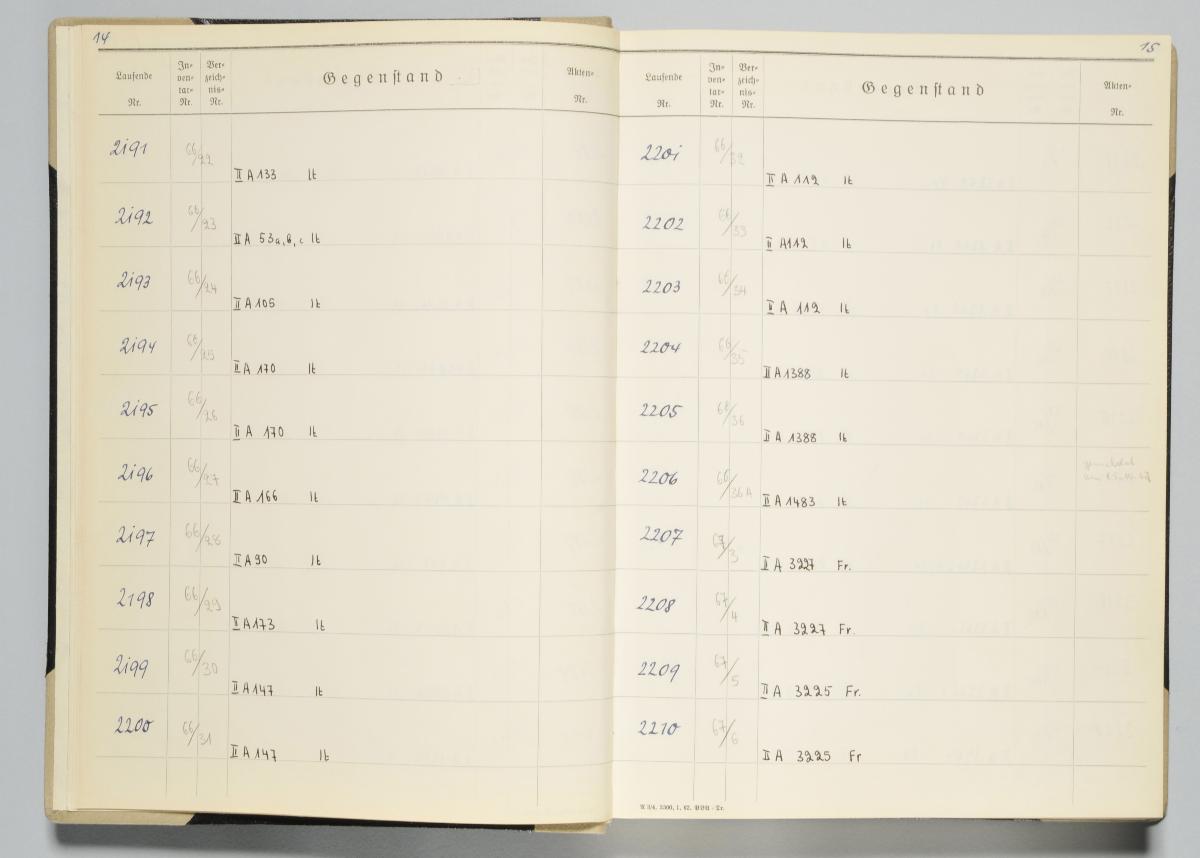 14
Laufende Nr. In- ven- tar- Nr. Ver- zeich- nis- Nr. Gegenstand Akten- Nr.
2191 66/22
II A 133 lt
2192 66/23
II A 53a, b, c lt
2193 66/24
II A 105 lt
2194 66/25
II A 170 lt
2195 66/26
II A 170 lt
2196 66/27
II A 166 lt
2197 66/28
II A 90 lt
2198 66/29
II A 173 lt
2199 66/30
II A 147 lt
2200 66/31
II A 147 lt
15
Laufende Nr. In- ven- tar- Nr. Ver- zeich- nis- Nr. Gegenstand Akten- Nr.
2201 66/32
II A 112 lt
2202 66/33
II A 112 lt
2203 66/34
II A 112 lt
2204 66/35
II A 1388 lt
2205 66/36
II A 1388 lt
2206 66/36A
II A 1483 lt
2207 67/3
II A 3227 Fr.
2208 67/4
II A 3227 Fr.
2209 67/5
II A 3225 Fr.
2210 67/6
II A 3225 Fr